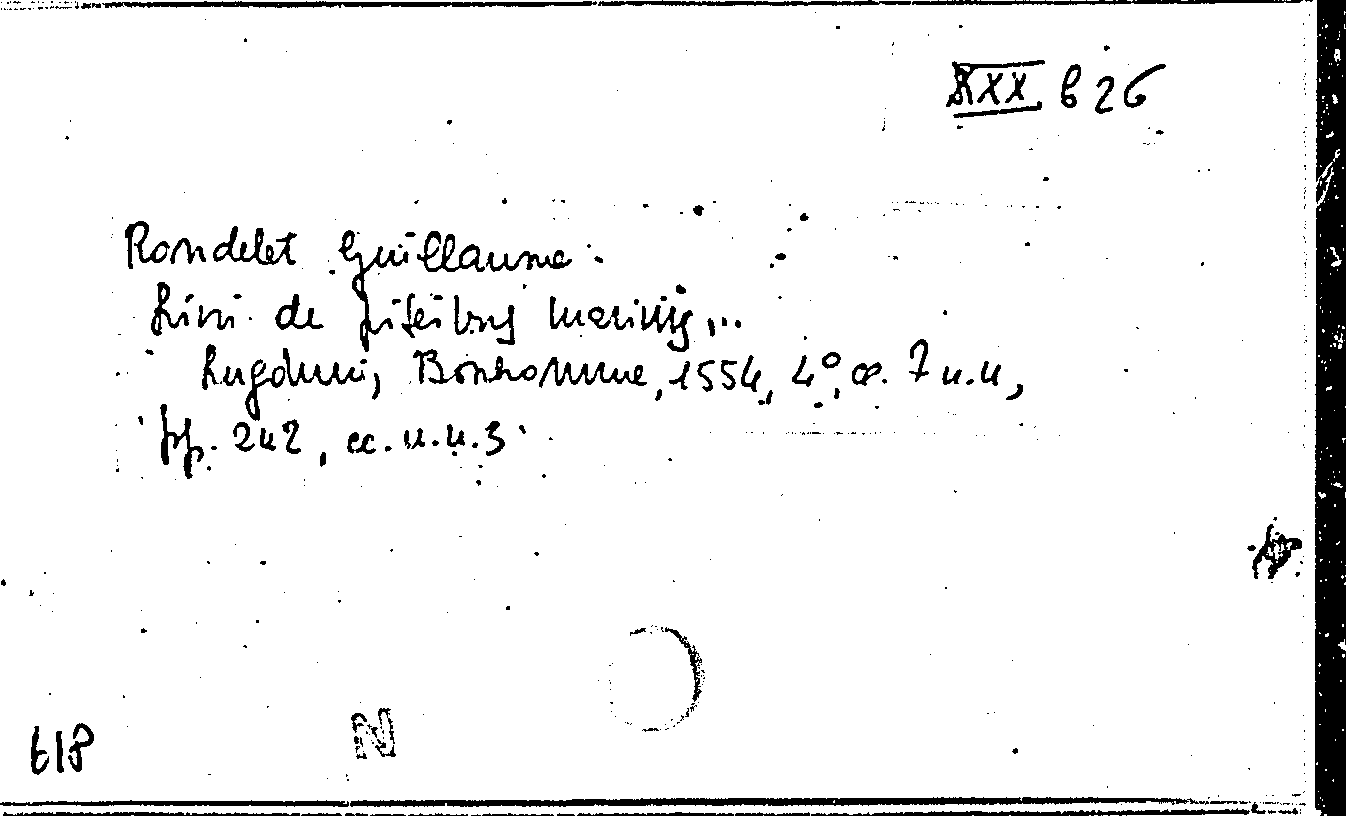 XXX b 26
Rondelet Guillaume.
Livri de piscibus marinis...
Lugduni, Bonhomme, 1554, 4°, cc. 7 n.n,
pp. 242, cc. n.n. 3
618
N